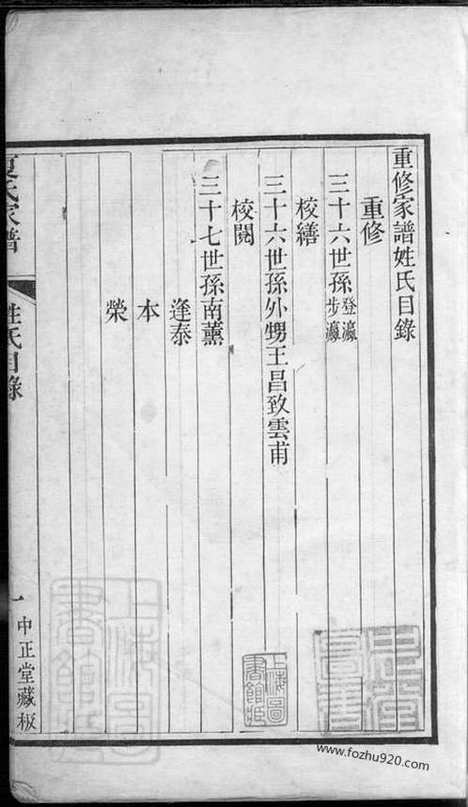 重修家譜姓氏目錄
重修
三十六世孫登瀛
步瀛
校繕
三十六世孫外甥王昌致雲甫
校閱
三十七世孫南薰
逢泰
本
榮
夏氏家譜
姓氏目錄
一
中正堂藏板
上海圖書館藏
www.fozhu920.com